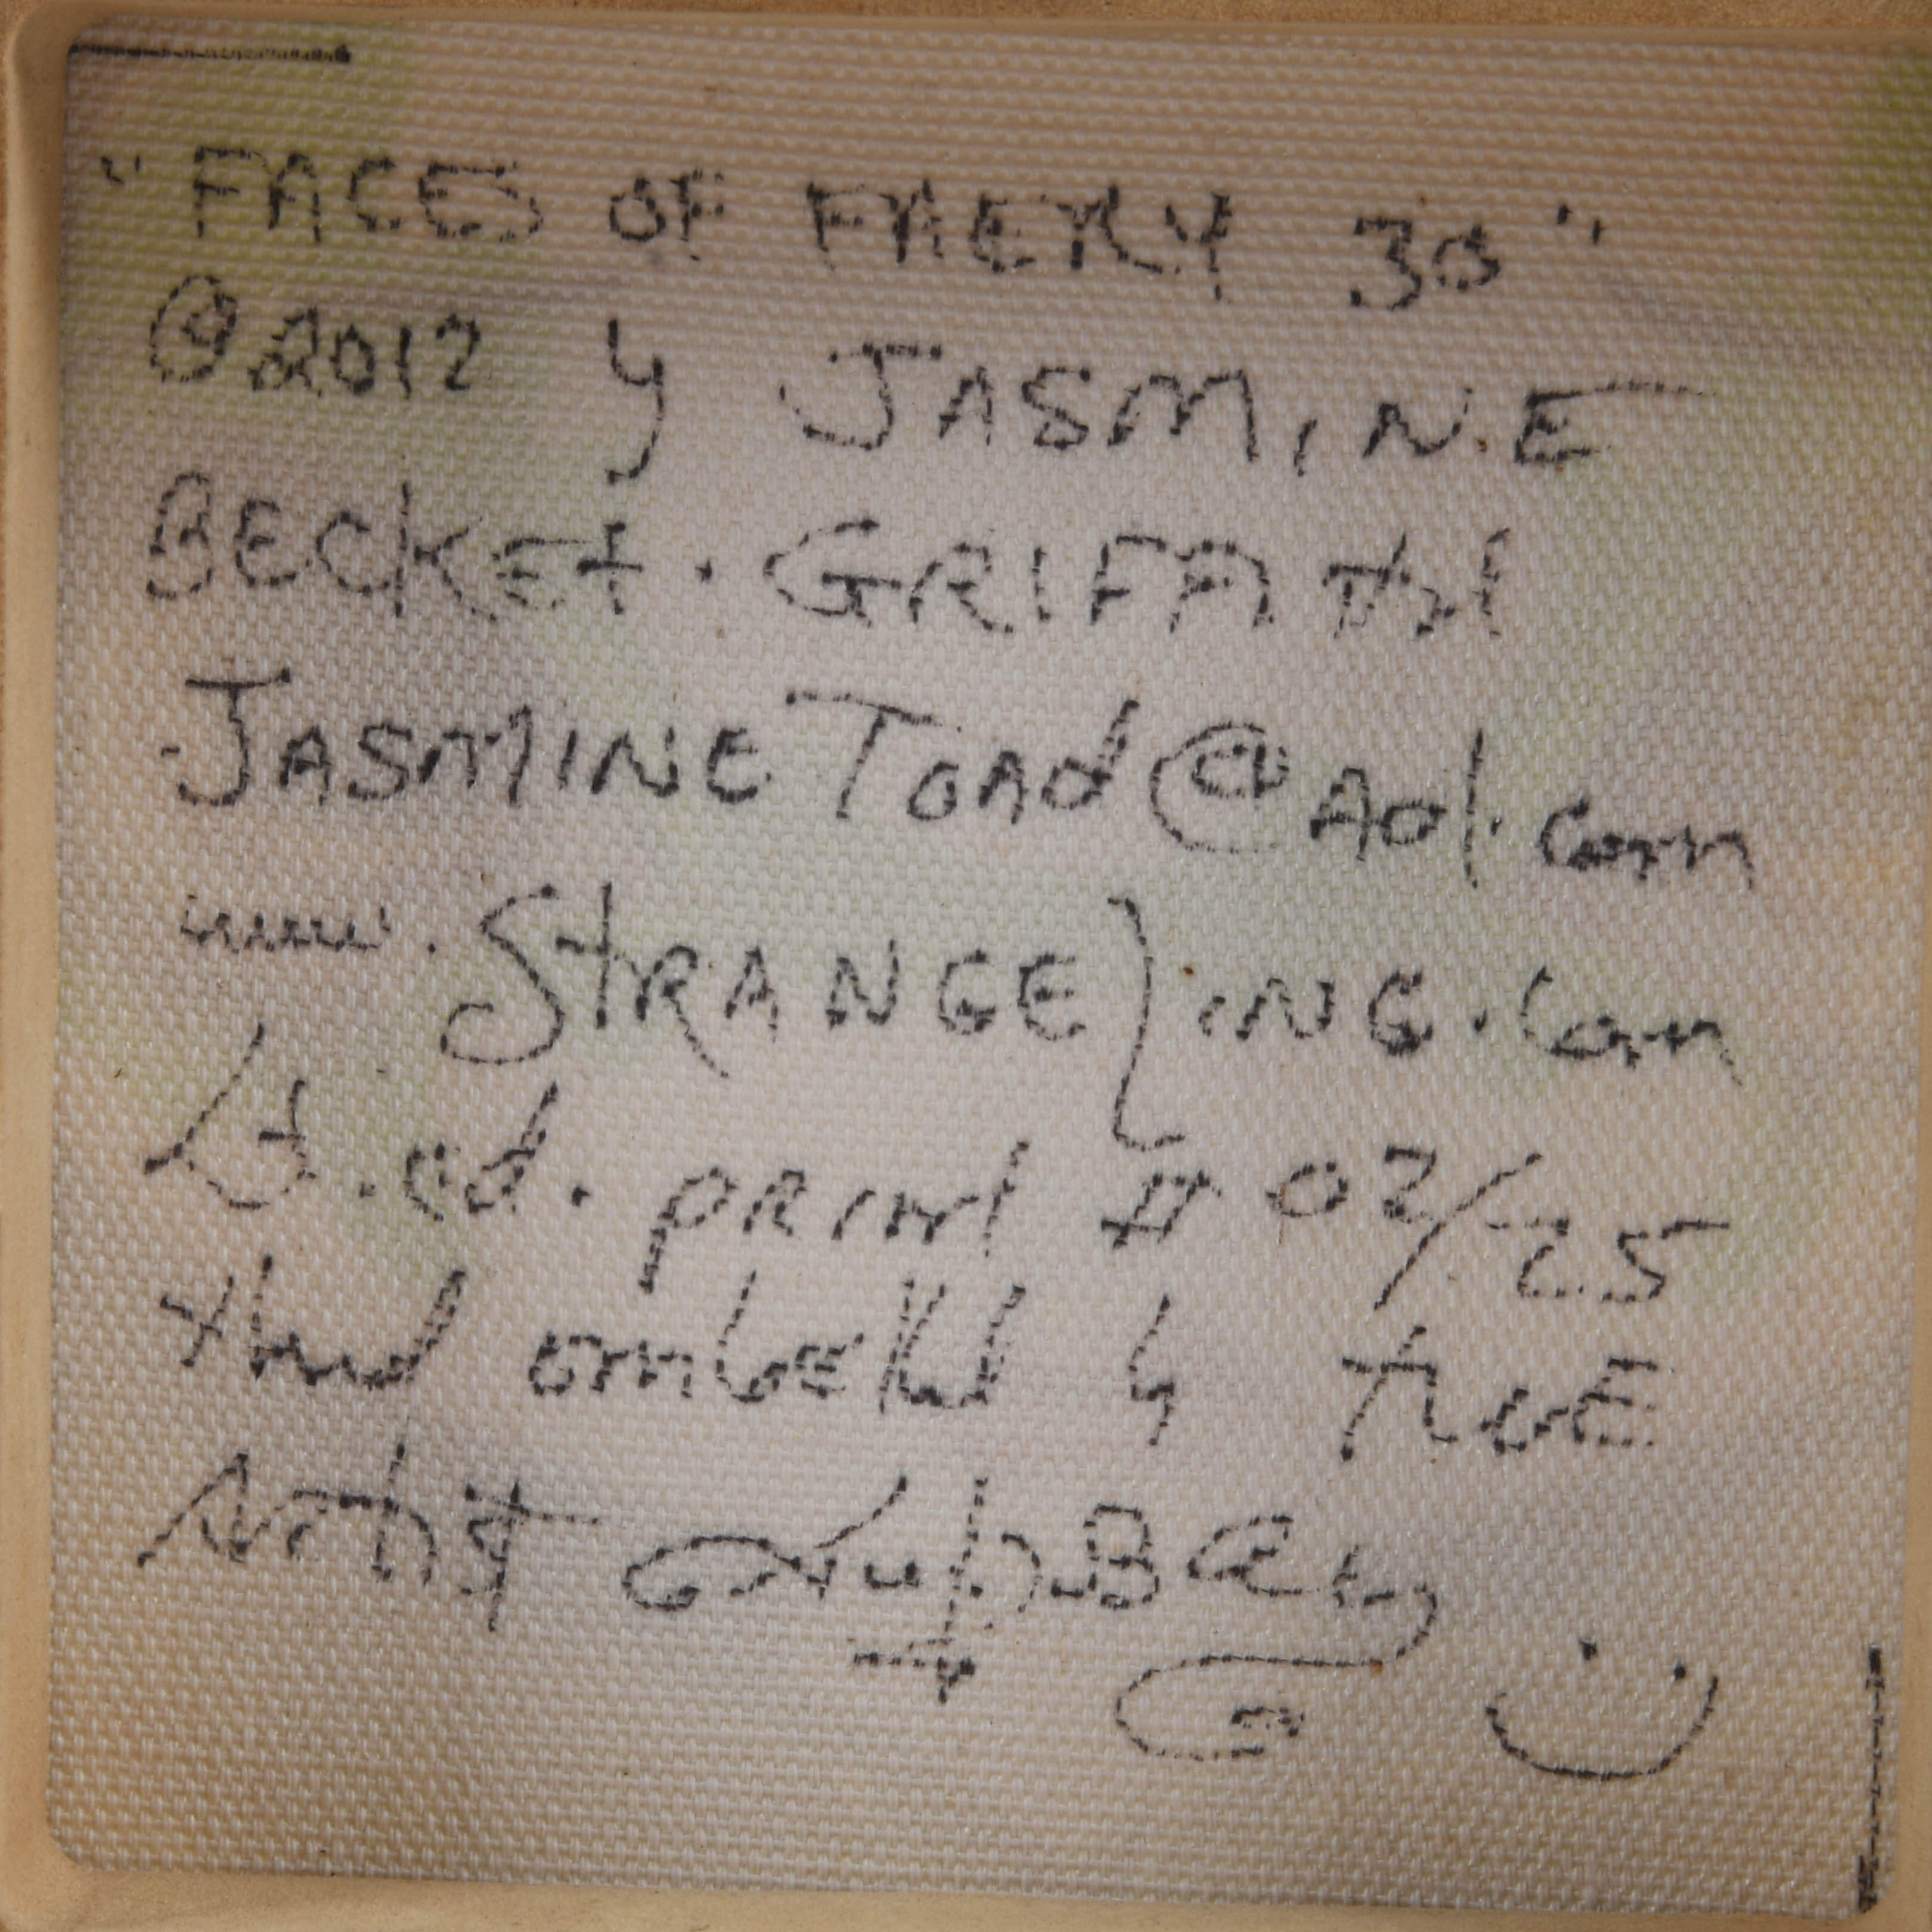 "FACES OF FAERY 30"
©2012 by JASMINE
BECKET-GRIFFITH
JASMINETOAD@AOL.COM
www.STRANGELING.COM
Lt.ed. print # 02/25
Hand embell'd by THE
Artist